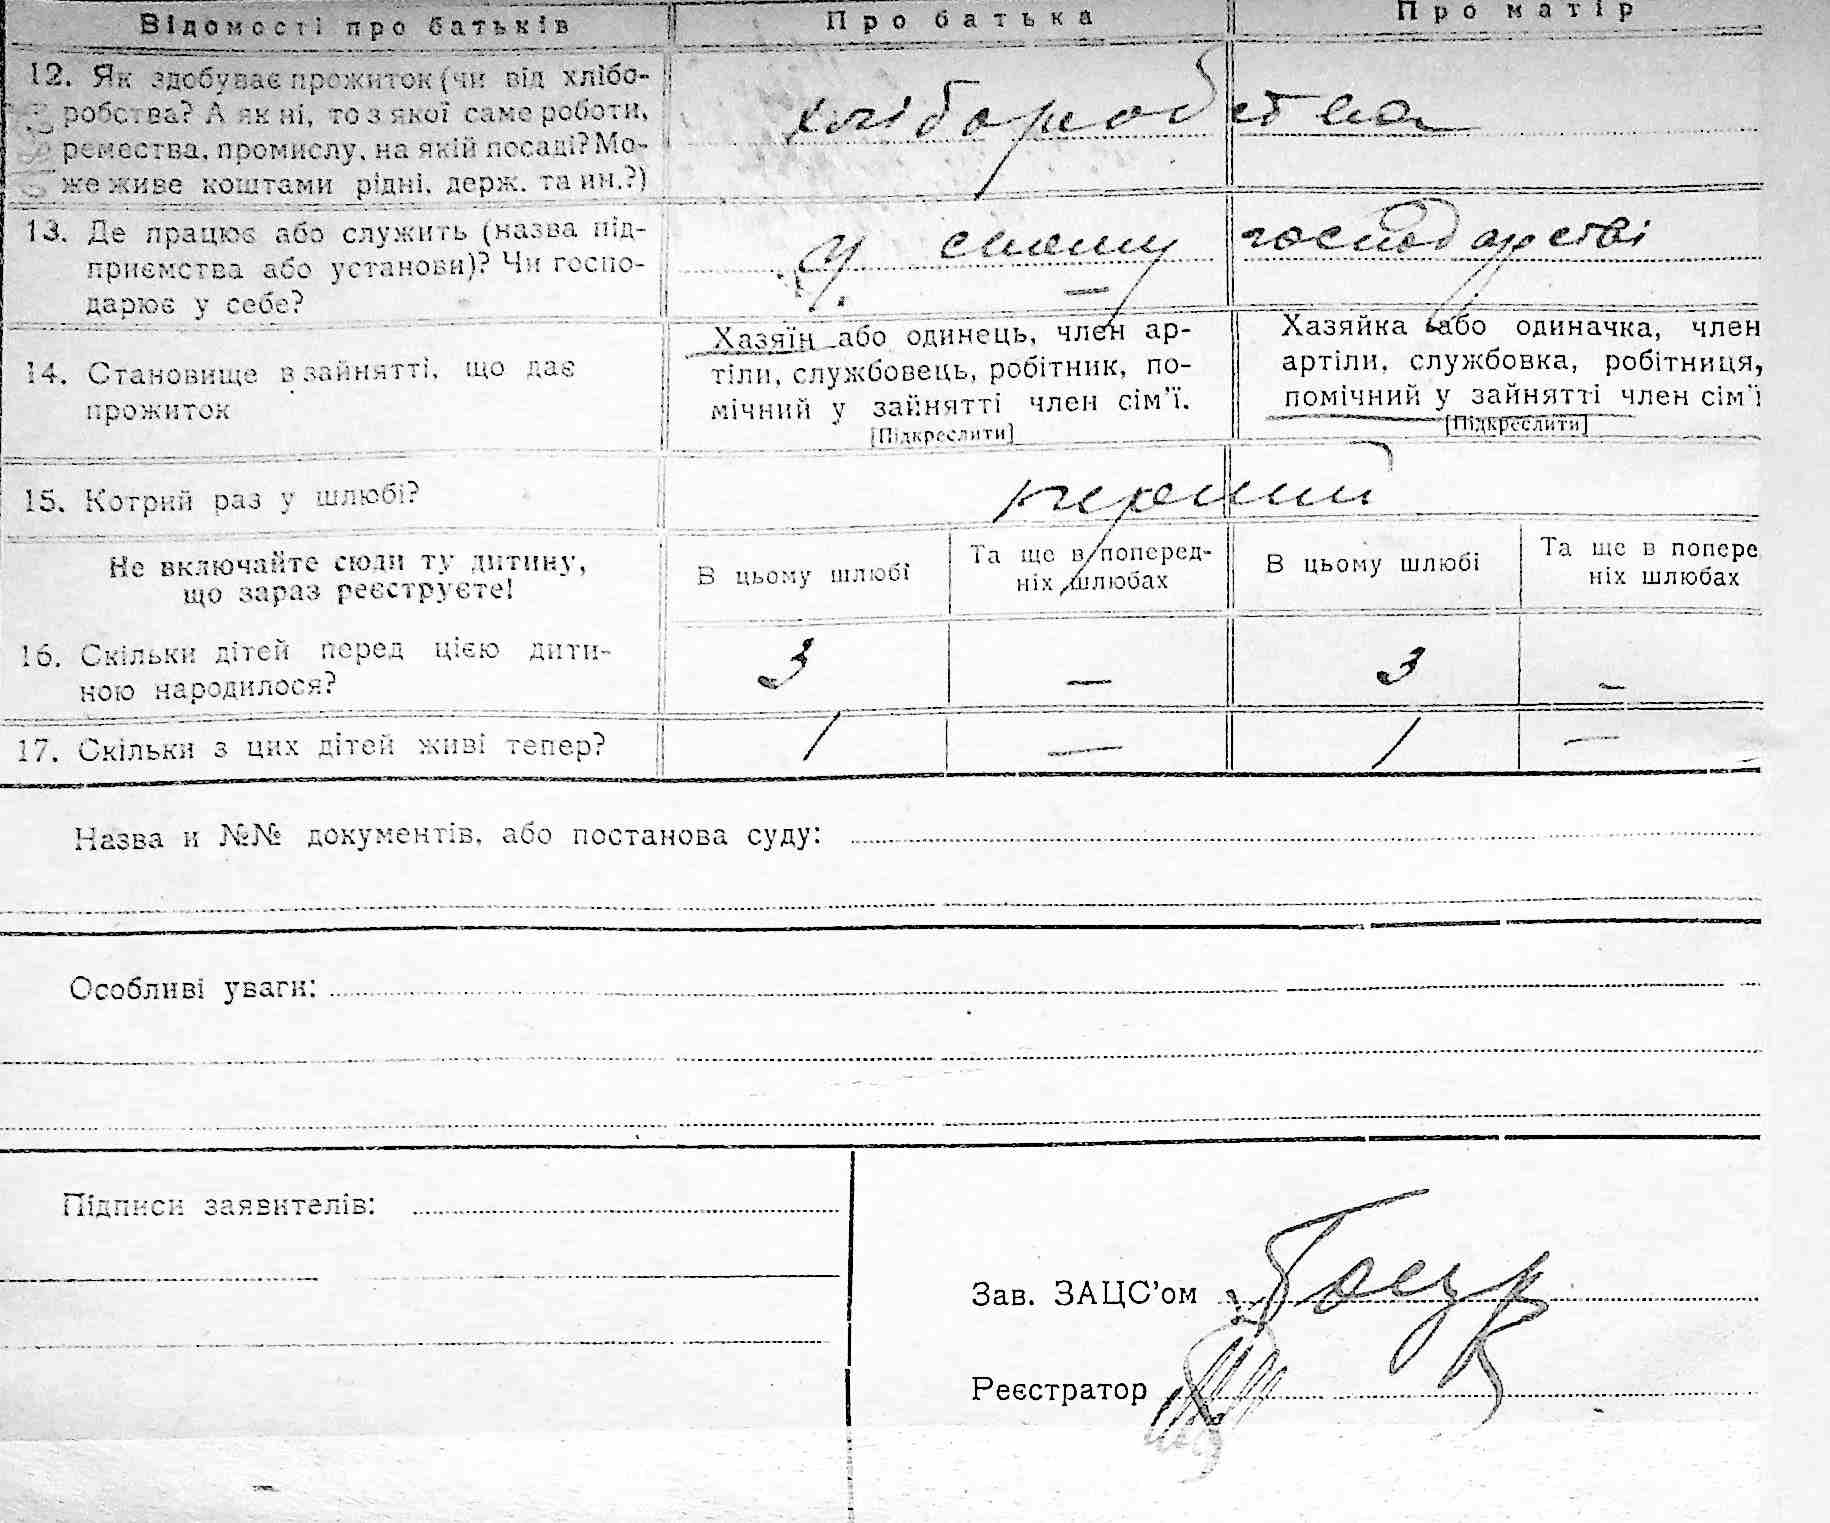 Відомості про батьків Про батька Про матір
12. Як здобуває прожиток (чи від хлібо-
робства? А як ні, то з якої саме роботи,
ремества, промислу, на якій посаді? Мо-
же живе коштами рідні, держ. та ин.?)
хліборобства
13. Де працює або служить (назва під-
приємства або установи)? Чи госпо-
дарює у себе?
У своєму господарстві
—
14. Становище в зайнятті, що дає
прожиток
Хазяїн або одинець, член ар-
тіли, службовець, робітник, по-
мічний у зайнятті член сім'ї.
[Підкреслити]
Хазяйка або одиначка, член
артіли, службовка, робітниця,
помічний у зайнятті член сім'ї
[Підкреслити]
15. Котрий раз у шлюбі?
перший
Не включайте сюди ту дитину,
що зараз реєструєте!
В цьому шлюбі
Та ще в поперед-
ніх шлюбах
В цьому шлюбі
Та ще в попере
ніх шлюбах
16. Скільки дітей перед цією дити-
ною народилося?
3 — 3 —
17. Скільки з цих дітей живі тепер? 1 — 1 —
Назва и №№ документів, або постанова суду:
Особливі уваги:
Підписи заявителів:
Зав. ЗАЦС'ом
Реєстратор